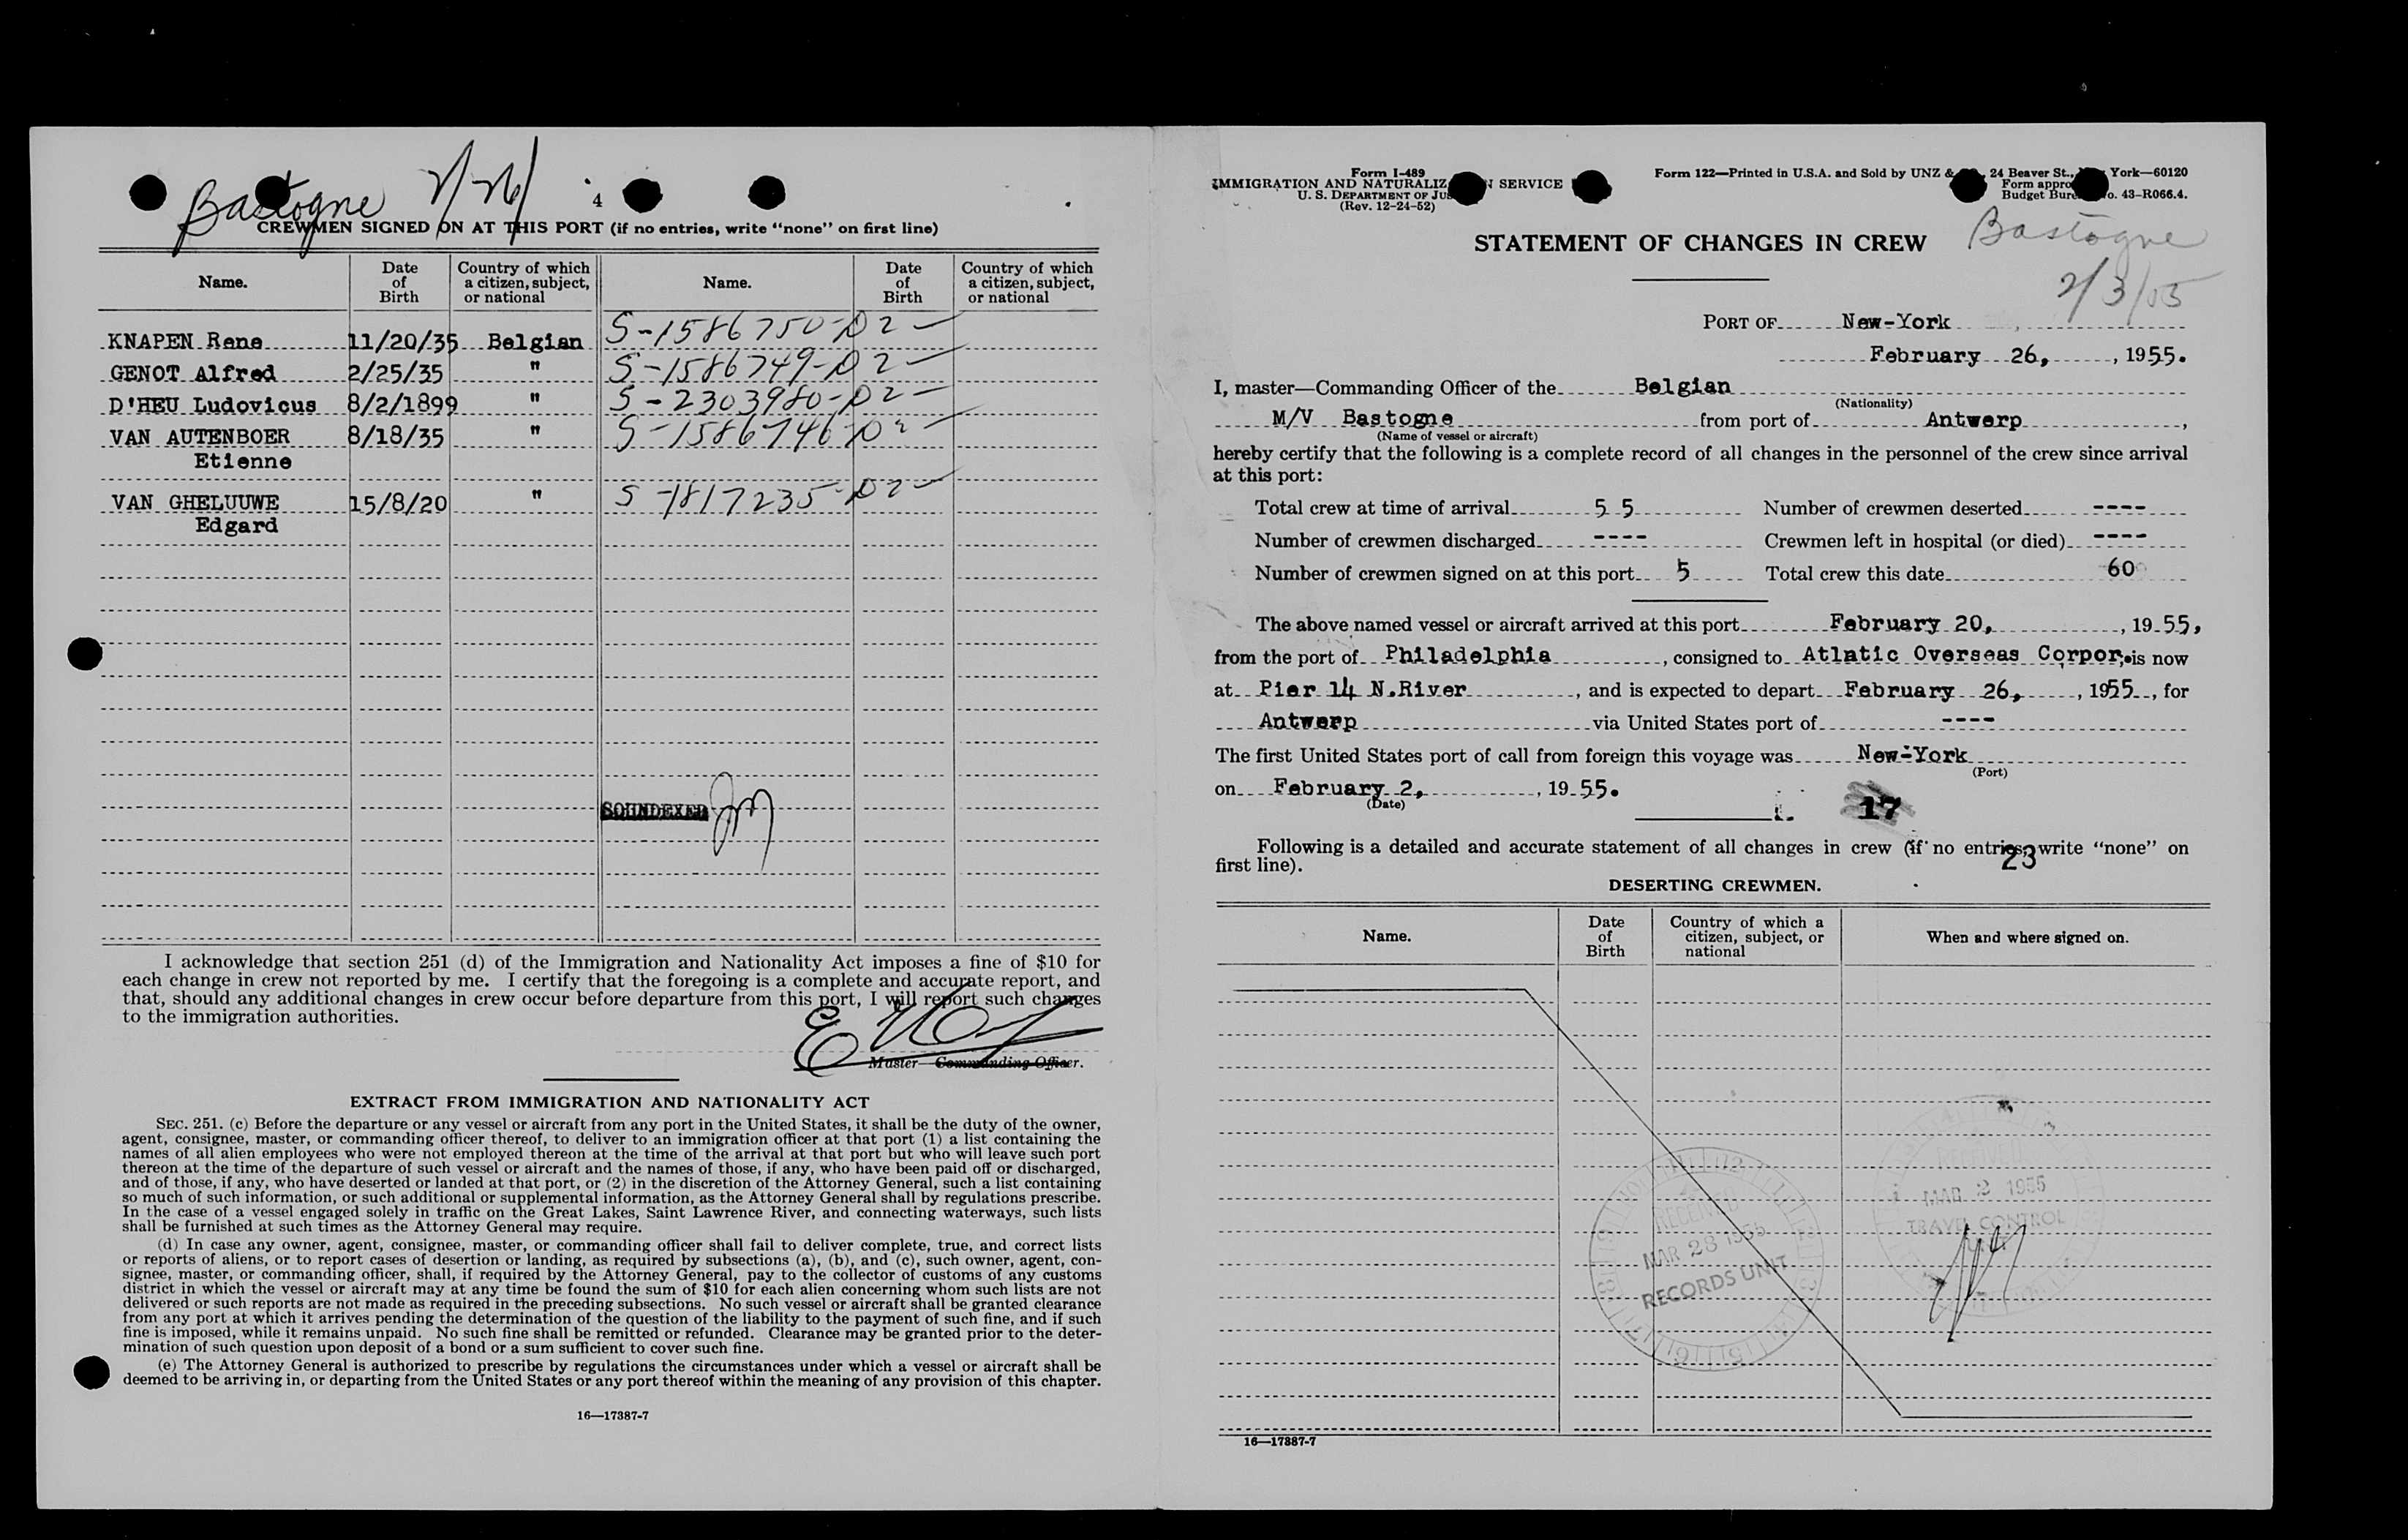 Bastogne 2/26/
4
CREWMEN SIGNED ON AT THIS PORT (if no entries, write "none" on first line)
Name. Date of Birth Country of which a citizen, subject, or national Name. Date of Birth Country of which a citizen, subject, or national
KNAPEN Rene 11/20/35 Belgian S-1586750-D2
GENOT Alfred 2/25/35 " S-1586749-D2
D'HEU Ludovicus 8/2/1899 " S-2303980-D2
VAN AUTENBOER 8/18/35 " S-1586746-D2
Etienne
VAN GHELUUWE 15/8/20 " S-1817235-D2
Edgard
SOUNDEXED
I acknowledge that section 251 (d) of the Immigration and Nationality Act imposes a fine of $10 for
each change in crew not reported by me. I certify that the foregoing is a complete and accurate report, and
that, should any additional changes in crew occur before departure from this port, I will report such changes
to the immigration authorities.
Master—Commanding Officer.
EXTRACT FROM IMMIGRATION AND NATIONALITY ACT
SEC. 251. (c) Before the departure or any vessel or aircraft from any port in the United States, it shall be the duty of the owner,
agent, consignee, master, or commanding officer thereof, to deliver to an immigration officer at that port (1) a list containing the
names of all alien employees who were not employed thereon at the time of the arrival at that port but who will leave such port
thereon at the time of the departure of such vessel or aircraft and the names of those, if any, who have been paid off or discharged,
and of those, if any, who have deserted or landed at that port, or (2) in the discretion of the Attorney General, such a list containing
so much of such information, or such additional or supplemental information, as the Attorney General shall by regulations prescribe.
In the case of a vessel engaged solely in traffic on the Great Lakes, Saint Lawrence River, and connecting waterways, such lists
shall be furnished at such times as the Attorney General may require.
(d) In case any owner, agent, consignee, master, or commanding officer shall fail to deliver complete, true, and correct lists
or reports of aliens, or to report cases of desertion or landing, as required by subsections (a), (b), and (c), such owner, agent, con-
signee, master, or commanding officer, shall, if required by the Attorney General, pay to the collector of customs of any customs
district in which the vessel or aircraft may at any time be found the sum of $10 for each alien concerning whom such lists are not
delivered or such reports are not made as required in the preceding subsections. No such vessel or aircraft shall be granted clearance
from any port at which it arrives pending the determination of the question of the liability to the payment of such fine, and if such
fine is imposed, while it remains unpaid. No such fine shall be remitted or refunded. Clearance may be granted prior to the deter-
mination of such question upon deposit of a bond or a sum sufficient to cover such fine.
(e) The Attorney General is authorized to prescribe by regulations the circumstances under which a vessel or aircraft shall be
deemed to be arriving in, or departing from the United States or any port thereof within the meaning of any provision of this chapter.
16—17387-7
Form I-489
IMMIGRATION AND NATURALIZ N SERVICE
U. S. DEPARTMENT OF JUS
(Rev. 12-24-52)
Form 122—Printed in U.S.A. and Sold by UNZ & 24 Beaver St., York—60120
Form appro
Budget Bure o. 43-R066.4.
STATEMENT OF CHANGES IN CREW
Bastogne
2/3/55
PORT OF New-York
February 26, , 1955.
I, master—Commanding Officer of the Belgian
(Nationality)
M/V Bastogne from port of Antwerp ,
(Name of vessel or aircraft)
hereby certify that the following is a complete record of all changes in the personnel of the crew since arrival
at this port:
Total crew at time of arrival 5 5 Number of crewmen deserted ----
Number of crewmen discharged ---- Crewmen left in hospital (or died) ----
Number of crewmen signed on at this port 5 Total crew this date 60
The above named vessel or aircraft arrived at this port February 20, , 19 55,
from the port of Philadelphia , consigned to Atlatic Overseas Corpor, is now
at Pier 14 N.River , and is expected to depart February 26, , 1955 , for
Antwerp via United States port of ----
The first United States port of call from foreign this voyage was New-York
(Port)
on February 2, , 19 55.
(Date)
17
Following is a detailed and accurate statement of all changes in crew (if no entries, write "none" on
first line).
23
DESERTING CREWMEN.
Name. Date of Birth Country of which a citizen, subject, or national When and where signed on.
RECEIVED
MAR 2 1955
TRAVEL CONTROL
RECEIVED
MAR 28 1955
RECORDS UNIT
16—17387-7